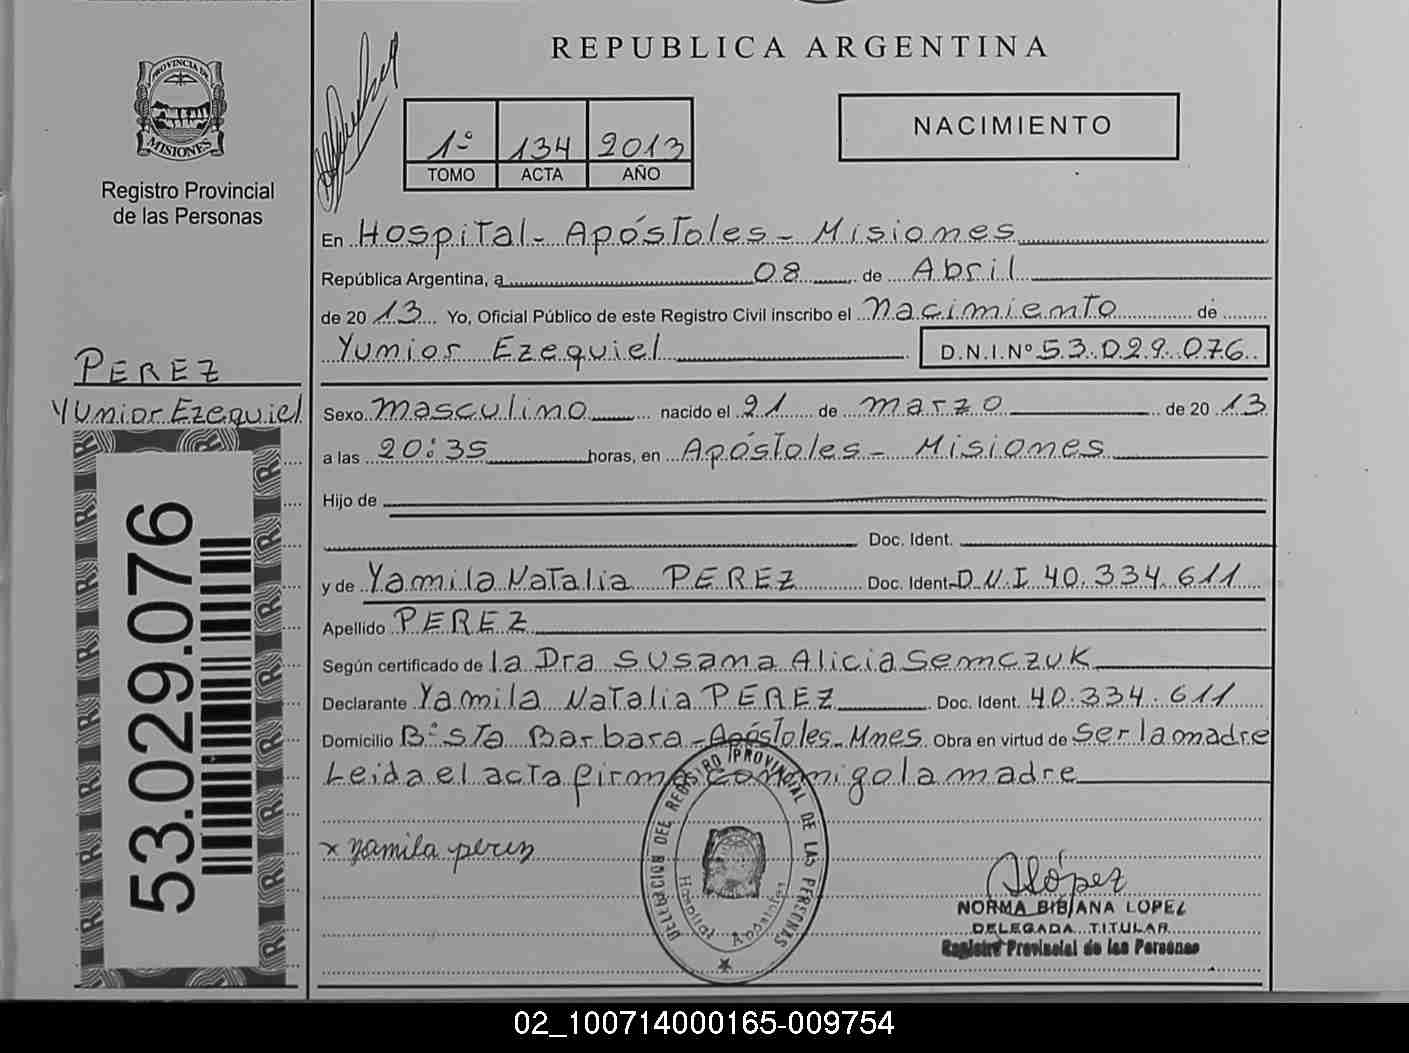 REPUBLICA ARGENTINA
PROVINCIA DE
MISIONES
Registro Provincial
de las Personas
1º 134 2013
TOMO ACTA AÑO
NACIMIENTO
En Hospital - Apóstoles - Misiones
República Argentina, a 08 de Abril
de 20 13 Yo, Oficial Público de este Registro Civil inscribo el Nacimiento de
Yunior Ezequiel D.N.I.Nº 53.029.076
PEREZ
Yunior Ezequiel
53.029.076
Sexo Masculino nacido el 21 de Marzo de 20 13
a las 20:35 horas, en Apóstoles - Misiones
Hijo de
Doc. Ident.
y de Yamila Natalia PEREZ Doc. Ident. D.N.I 40.334.611
Apellido PEREZ
Según certificado de la Dra Susana Alicia Semczuk
Declarante Yamila Natalia PEREZ Doc. Ident. 40.334.611
Domicilio Bº Sta Barbara - Apóstoles - Mnes. Obra en virtud de Ser la madre
Leida el acta firma conmigo la madre
x Yamila perez
DELEGACION DEL REGISTRO PROVINCIAL DE LAS PERSONAS
Hospital Apóstoles
NLópez
NORMA BIBIANA LOPEZ
DELEGADA TITULAR
Registro Provincial de las Personas
02_100714000165-009754